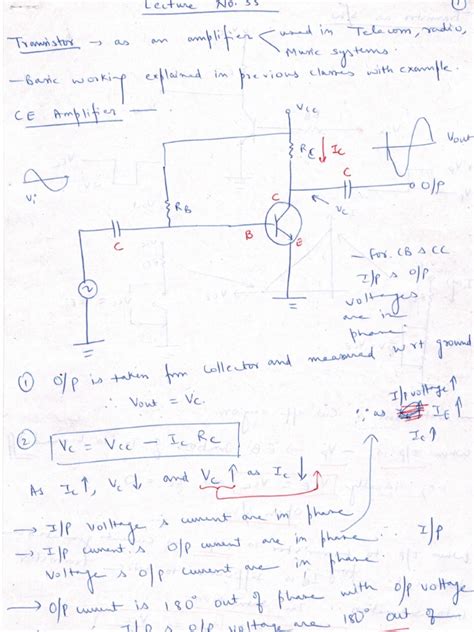 Lecture No. 33
①
Transistor → as an amplifier
used in Telecom, radio,
Music systems.
- Basic working explained in previous classes with example.
CE Amplifier —
Vcc
Rc
Ic
Vout
C
O/P
Vi
RB
C
C
B
E
Vc
- For CB & CC
I/p & o/p
voltages
are in
phase.
① O/p is taken from collector and measured wrt ground
∴ Vout = Vc.
∵ as
I/p voltage↑
IE↑
Ic↑
② Vc = Vcc − Ic Rc
As Ic↑, Vc↓ and Vc↑ as Ic↓
→ I/P voltage & current are in phase
→ I/P current & O/P current are in phase ∴ I/P
voltage & O/P current are in phase.
→ O/P current is 180° out of phase with O/P voltage
I/P & O/P voltage are 180° out of